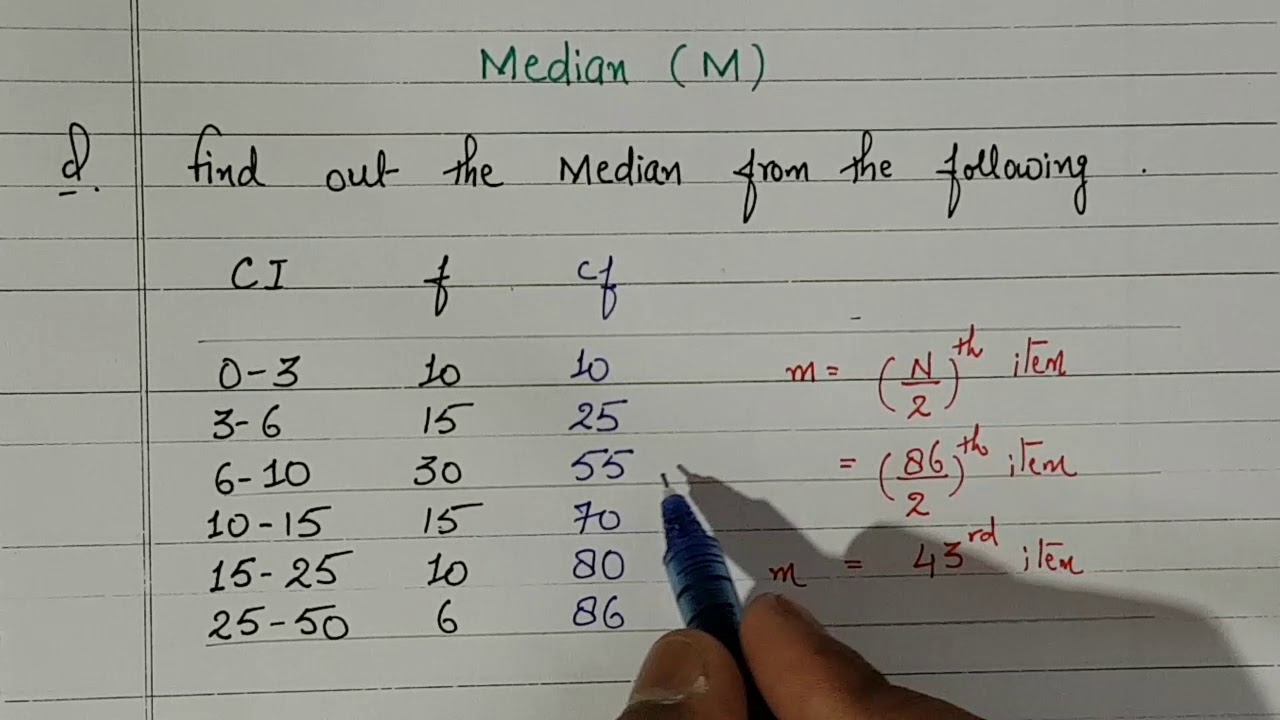 Median (M)
Q. find out the Median from the following.
CI f cf
0-3 10 10
3-6 15 25
6-10 30 55
10-15 15 70
15-25 10 80
25-50 6 86
m = (N/2)th item
= (86/2)th item
m = 43rd item